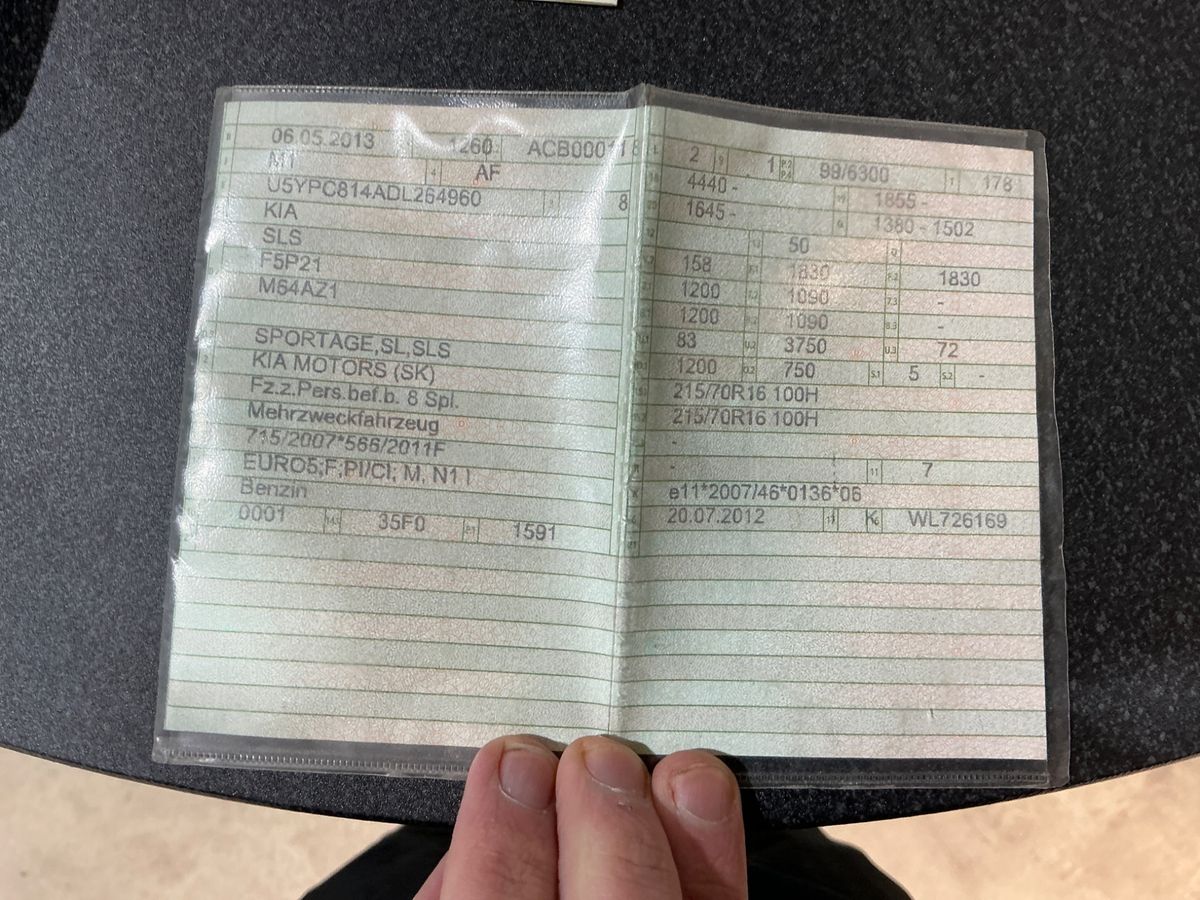 06.05.2013 1260 ACB000118
M1 4 AF
U5YPC814ADL264960 8
KIA
SLS
F5P21
M64AZ1
SPORTAGE,SL,SLS
KIA MOTORS (SK)
Fz.z.Pers.bef.b. 8 Spl.
Mehrzweckfahrzeug
715/2007*566/2011F
EURO5;F;PI/CI; M, N1 I
Benzin
0001 35F0 1591
2 9 1 P.2 P.4 99/6300 T 178
4440 - 1855 -
1645 - G 1380 - 1502
50
158 1830 1830
1200 1090 7.3 -
1200 1090 8.3 -
83 U.2 3750 U.3 72
1200 O.2 750 S.1 5 S.2 -
215/70R16 100H
215/70R16 100H
-
- 11 7
K e11*2007/46*0136*06
20.07.2012 17 K 16 WL726169